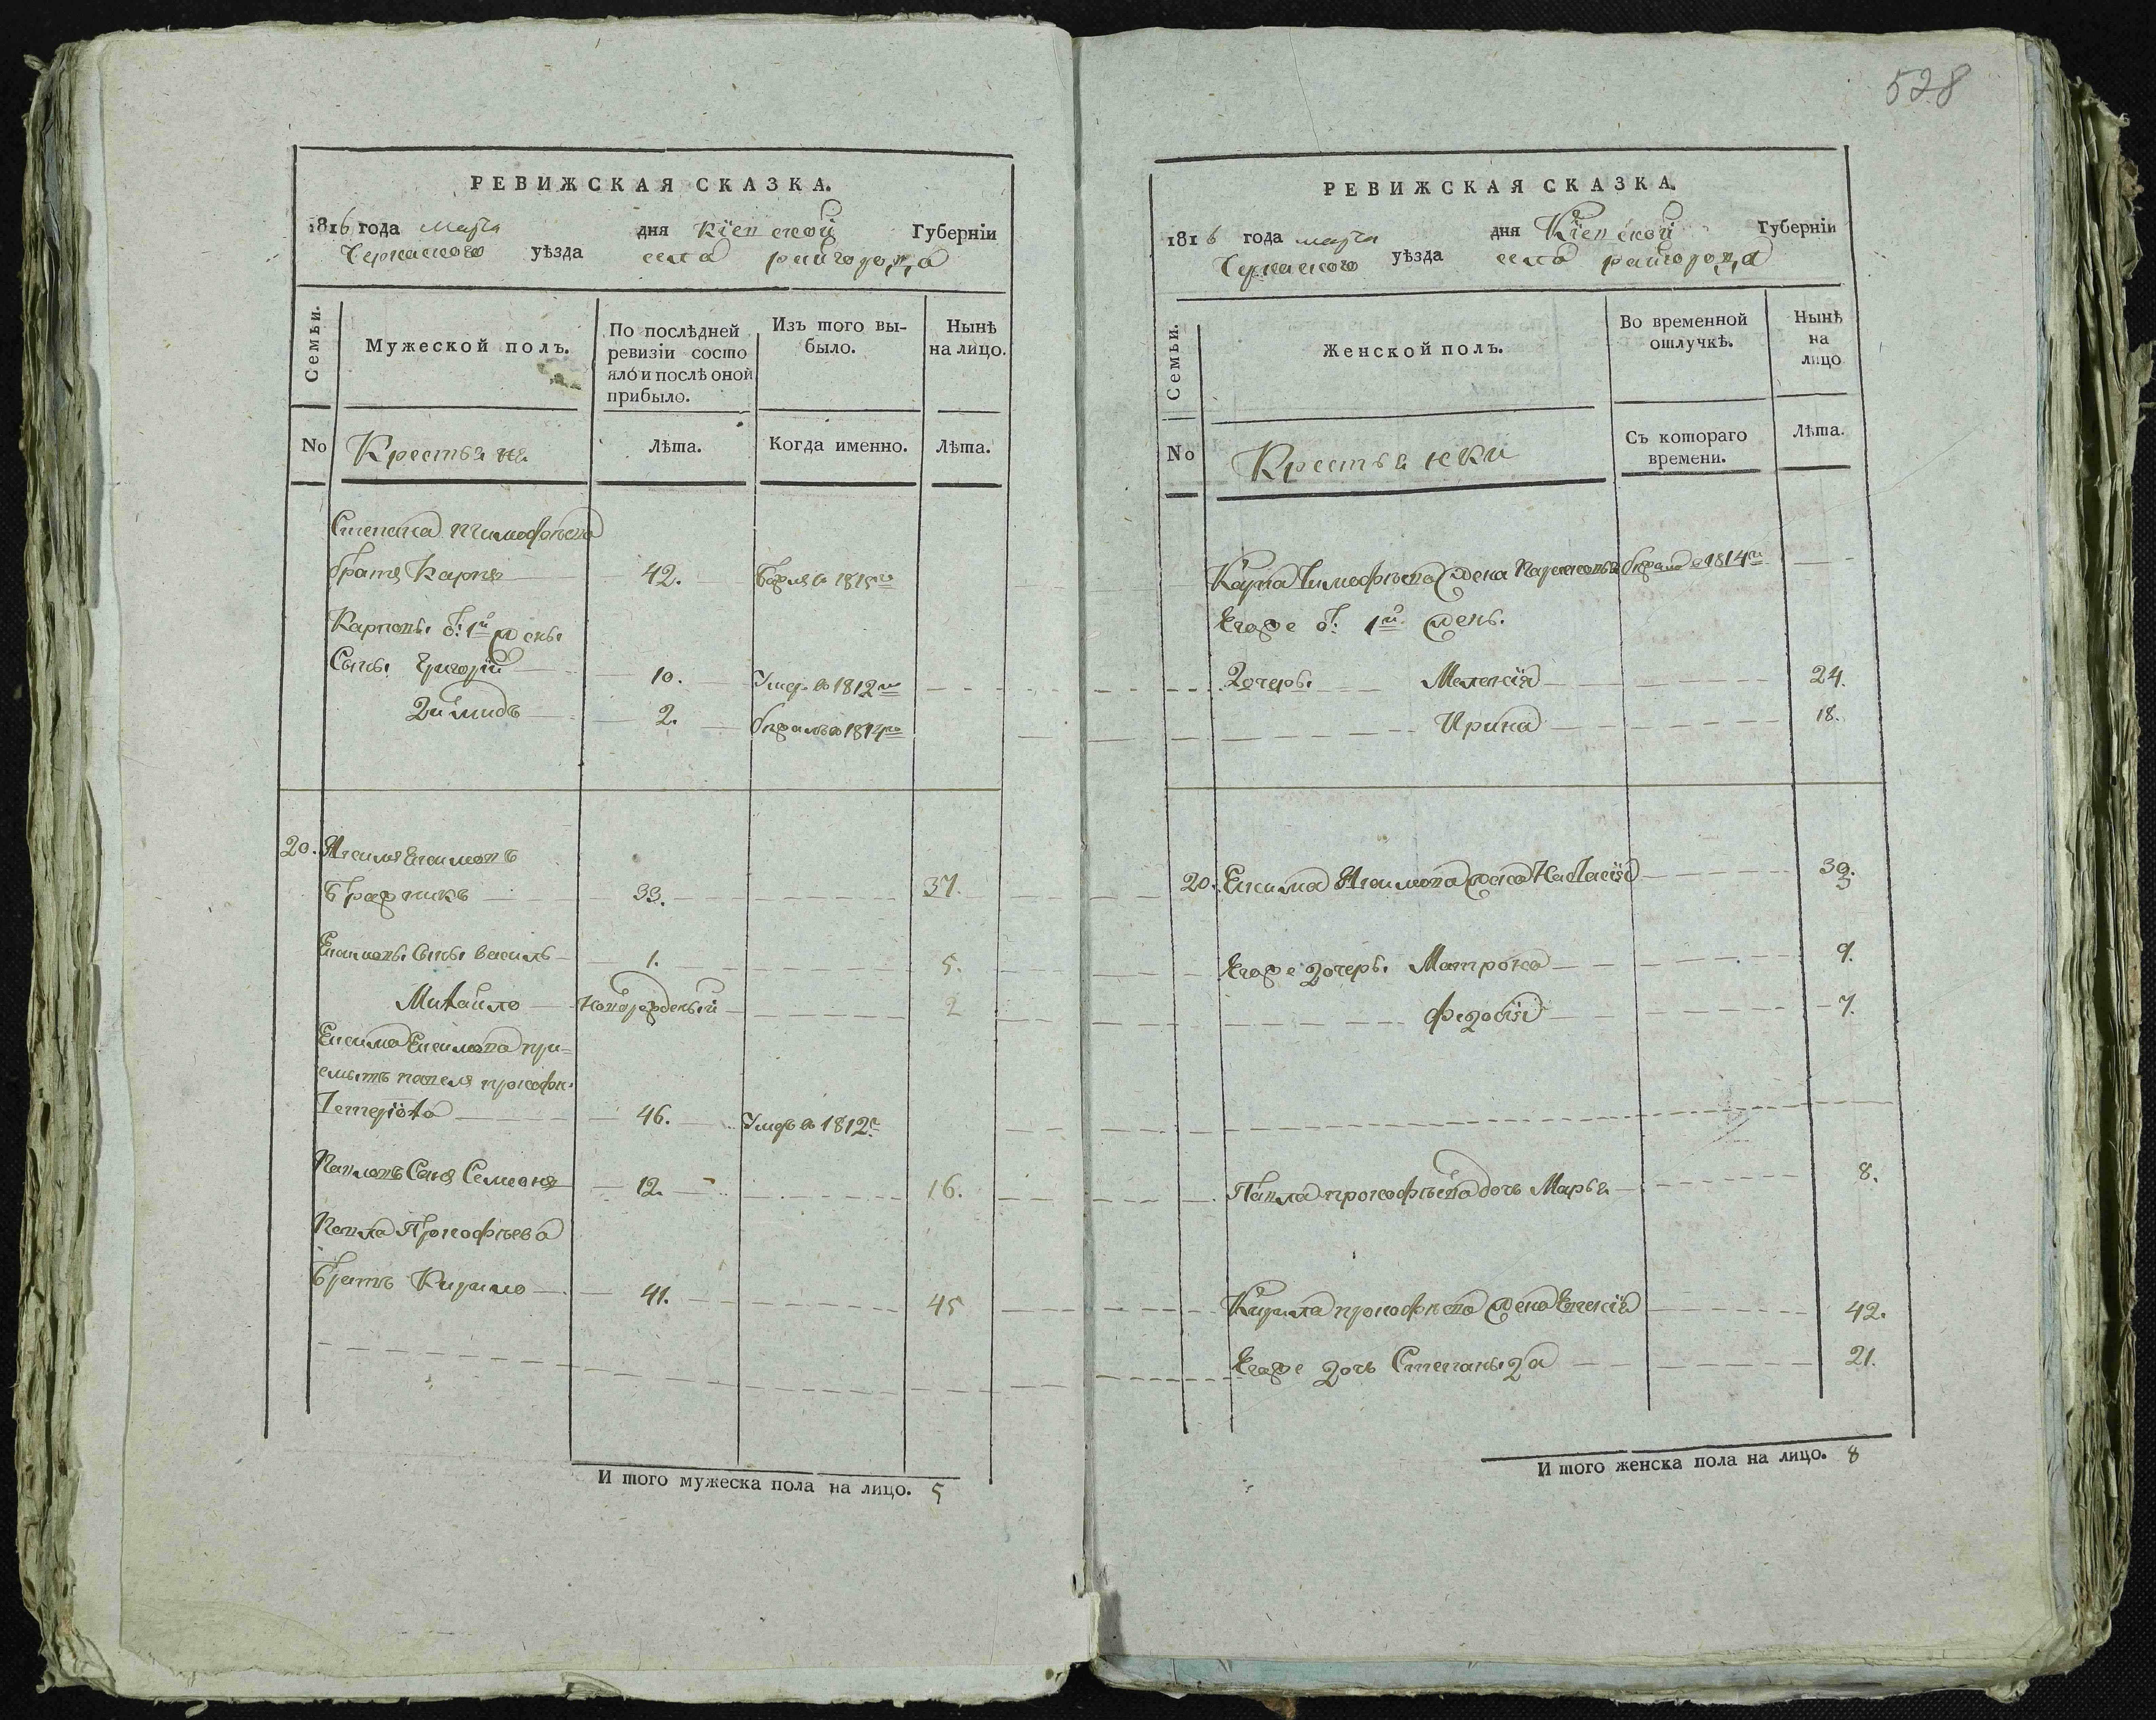 528
РЕВИЖСКАЯ СКАЗКА.
1816 года марта дня Кіевской Губерніи
Черкаского уѣзда села райгорода
Семьи.
Мужеской полъ.
По послѣдней
ревизіи состо
яло и послѣ оной
прибыло.
Изъ того вы-
было.
Нынѣ
на лицо.
No
Крестьяне
Лѣта.
Когда именно.
Лѣта.
Степана тимофѣева
братъ Карпъ 42.
Карповы б: 1й жены
Сыны Григорій 10. Умер в 1812го
Димидъ 2. бежалъ в 1814го
20.
Бражникъ 33. 37.
сынъ василь 1. 5.
Михайло новорожденный 2
при-
емытъ павелъ прокоф:
46. Умеръ в 1812г
Павловъ Сынъ Семіонъ 12. 16.
Павла Прокофьева
братъ Кирило 41. 45
И того мужеска пола на лицо. 5
РЕВИЖСКАЯ СКАЗКА.
1816 года марта дня Кіевской Губерніи
Черкаского уѣзда села райгорода
Семьи.
Женской полъ.
Во временной
отлучкѣ.
Нынѣ
на
лицо
No
Крестьянки
Съ котораго
времени.
Лѣта.
Карпа Тимофѣева жена 1814го
Егоже б: 1й жены
Дочеры Меланія 24.
Ирина 18.
20. жена Настасія 39.
Егоже дочеры Матрона 9.
Федосія 7.
Павла прокофьева дочь Марья 8.
Кирила прокофьева жена Евгенія 42.
Егоже дочь Степаныда 21.
И того женска пола на лицо. 8